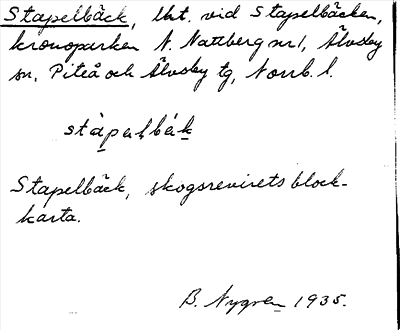 Stapelbäck, lht. vid Stapelbäcken,
kronoparken N. Nattberg nr 1, Älvsby
sn, Piteå och Älvsby tg, Norrb. l.
stàpəlbäk
Stapelbäck, skogsrevirets block-
karta.
B. Nygren 1935.